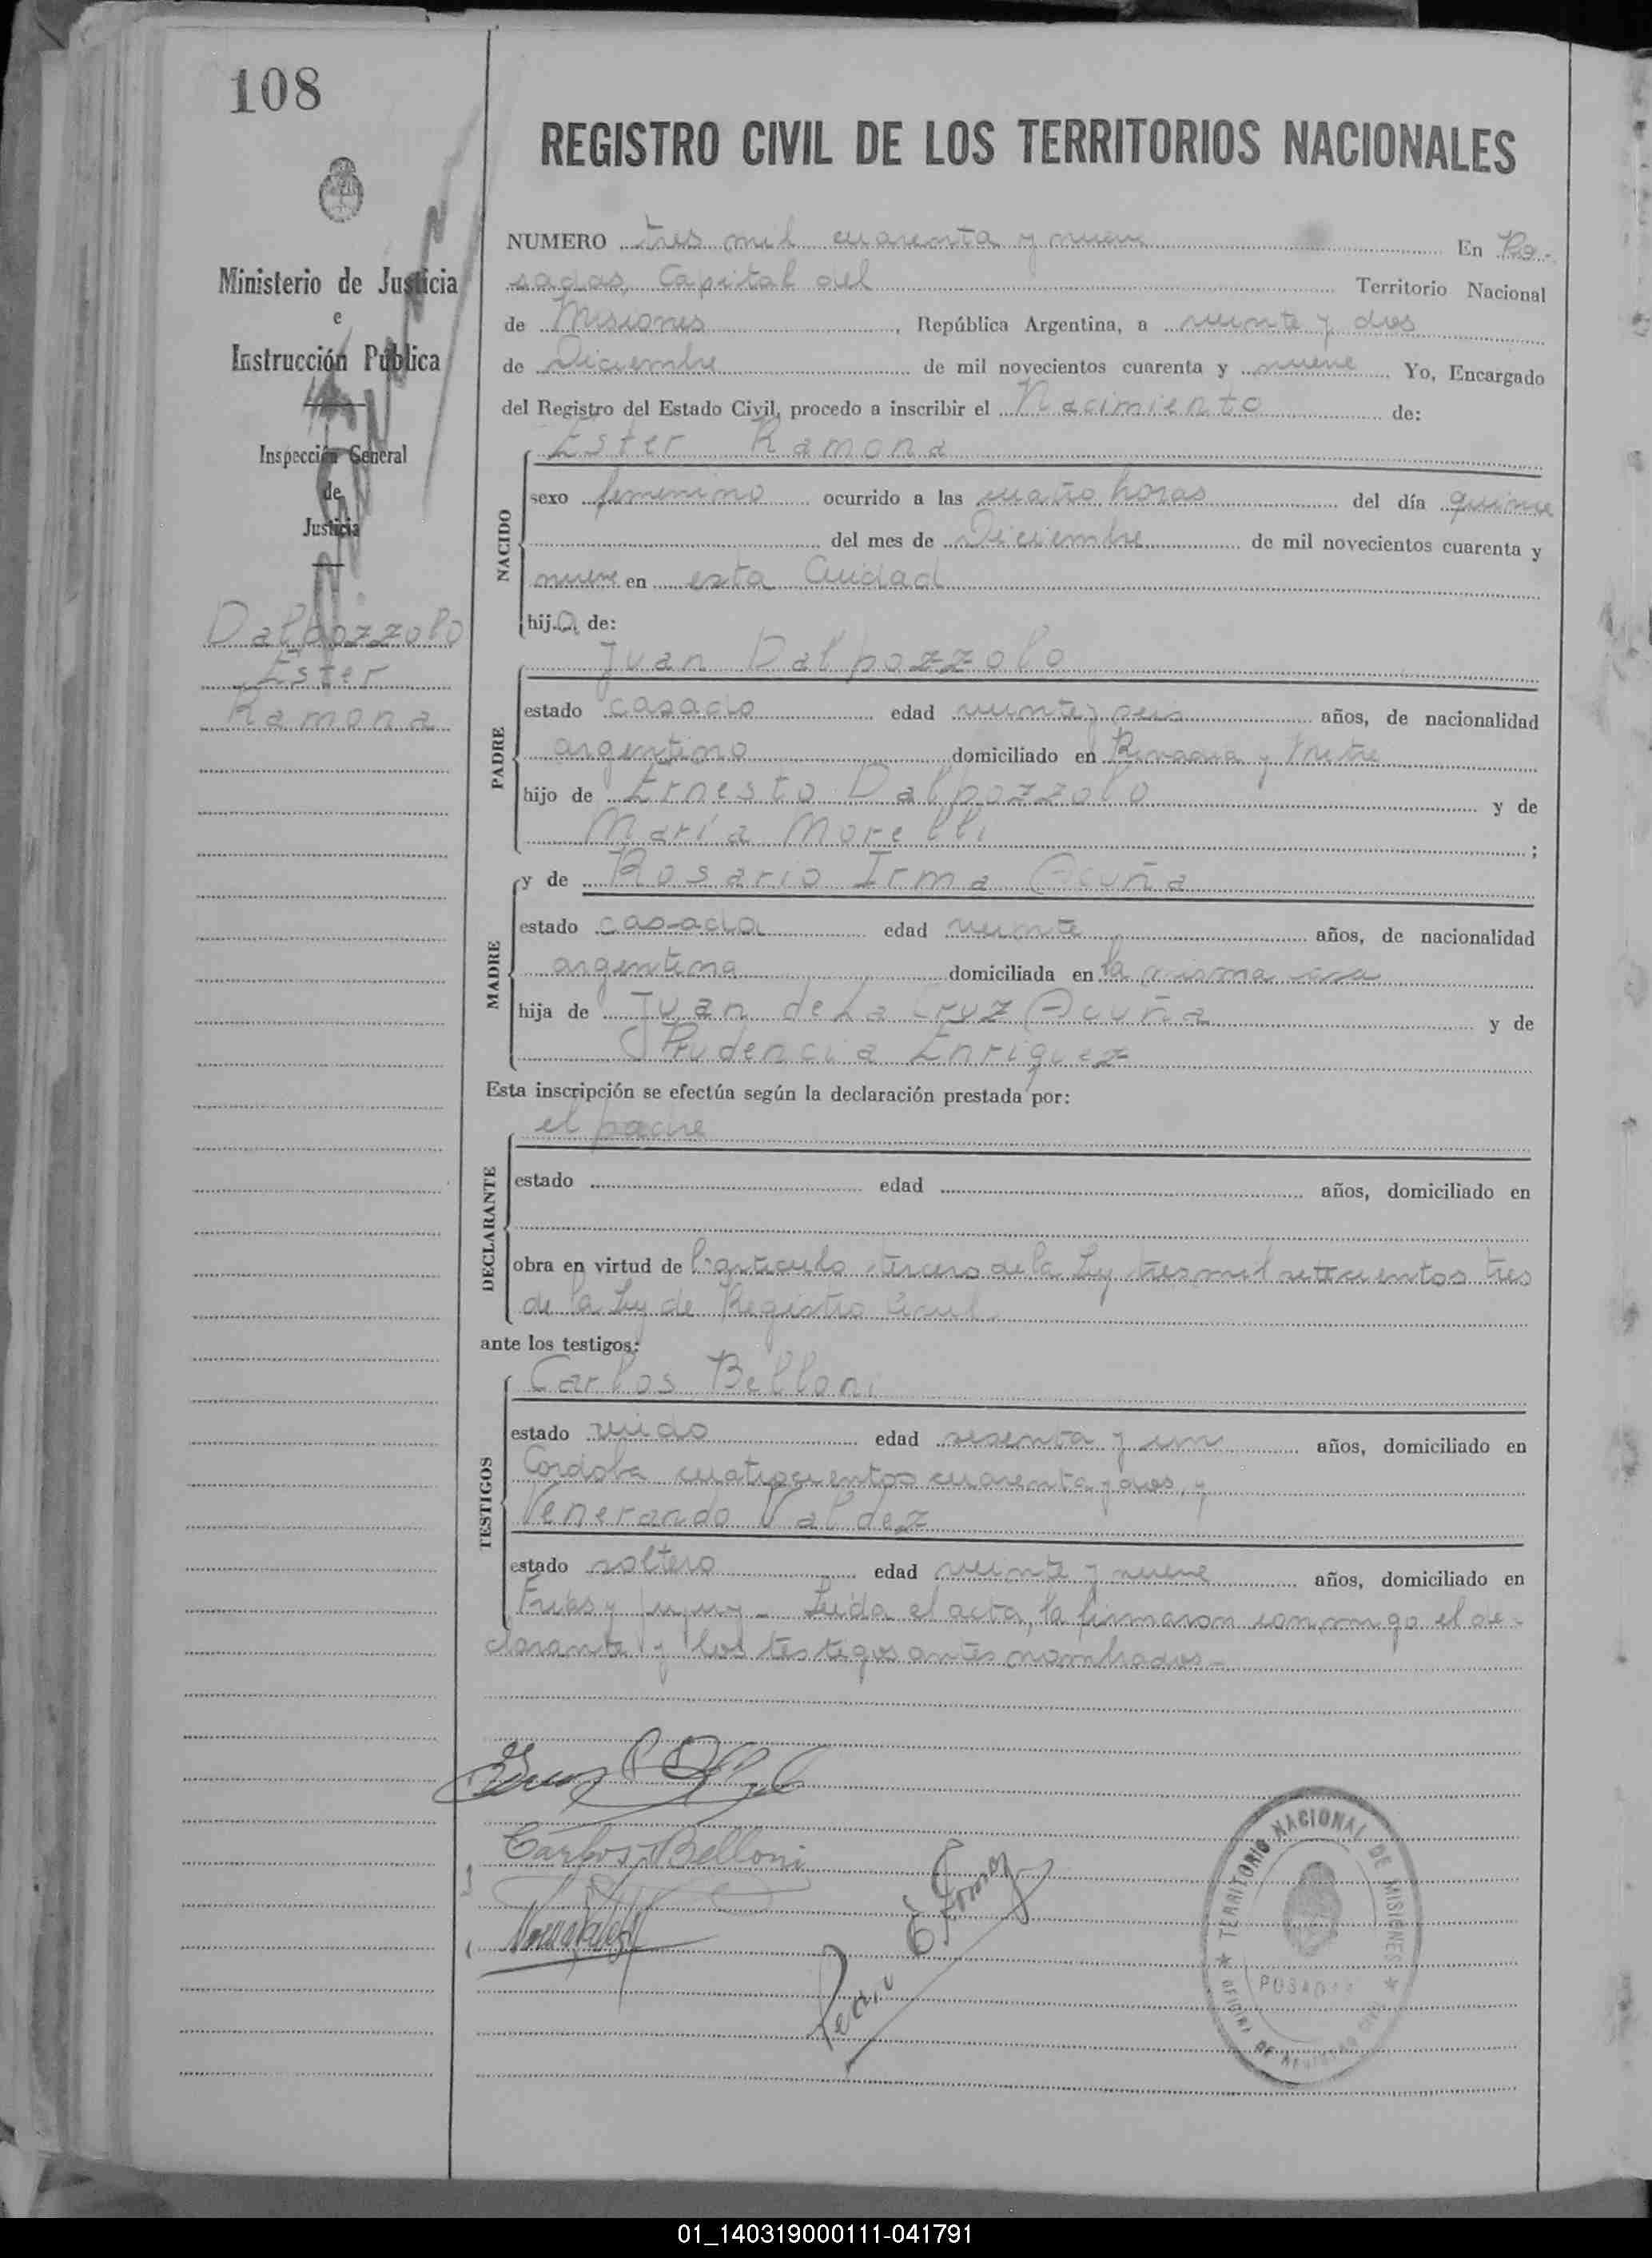 108
REGISTRO CIVIL DE LOS TERRITORIOS NACIONALES
Ministerio de Justicia
e
Instrucción Pública
Inspección General
de
Justicia
Dalpozzolo
Ester
Ramona
NUMERO tres mil cuarenta y nueve En Po-
sadas, Capital del Territorio Nacional
de Misiones, República Argentina, a veinte y dos
de Diciembre de mil novecientos cuarenta y nueve Yo, Encargado
del Registro del Estado Civil, procedo a inscribir el Nacimiento de:
Ester Ramona
NACIDO
sexo femenino ocurrido a las cuatro horas del día quince
del mes de Diciembre de mil novecientos cuarenta y
nueve en esta Ciudad
hija de:
Juan Dalpozzolo
PADRE
estado casado edad veinte y seis años, de nacionalidad
argentino domiciliado en y Mitre
hijo de Ernesto Dalpozzolo y de
María Morelli ;
y de Rosario Irma Acuña
MADRE
estado casada edad veinte años, de nacionalidad
argentina domiciliada en la misma casa
hija de Juan de La Cruz Acuña y de
Prudencia Enriquez
Esta inscripción se efectúa según la declaración prestada por:
el padre
DECLARANTE
estado edad años, domiciliado en
obra en virtud de artículo tercero de la Ley tres mil setecientos tres
de la Ley de Registro Civil
ante los testigos:
Carlos Belloni
TESTIGOS
estado viudo edad sesenta y un años, domiciliado en
Cordoba cuatrocientos cuarenta y dos, y
Venerando Valdez
estado soltero edad veinte y nueve años, domiciliado en
y Jujuy - Leída el acta, la firmaron conmigo el de-
clarante y los testigos antes nombrados -
Carlos Belloni
TERRITORIO NACIONAL DE MISIONES
POSADAS
OFICINA DE REGISTRO CIVIL
01_140319000111-041791